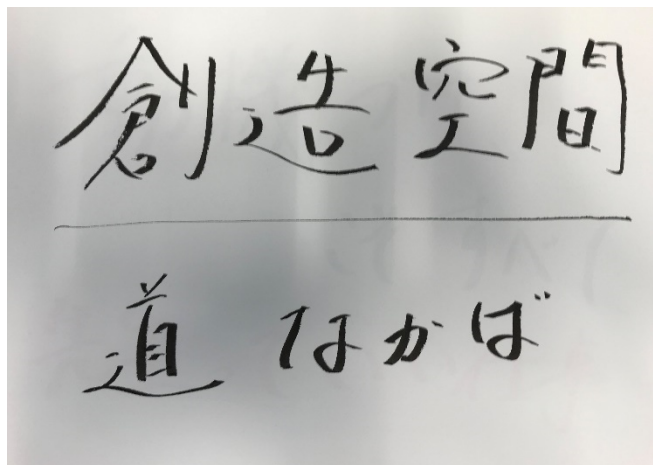 創造空間
道なかば